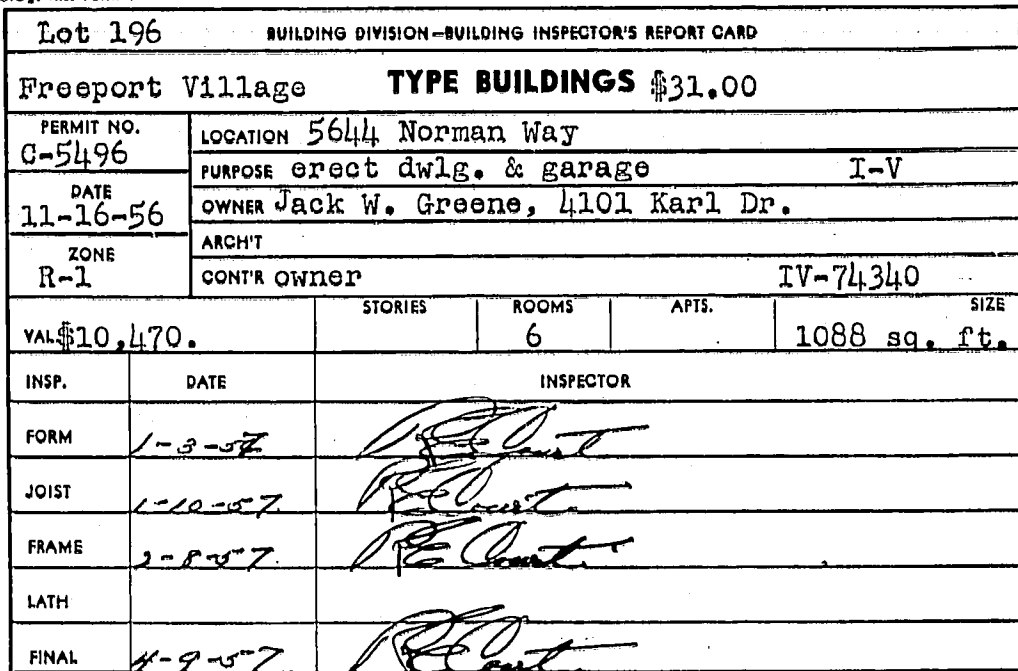 Lot 196 BUILDING DIVISION—BUILDING INSPECTOR'S REPORT CARD
Freeport Village TYPE BUILDINGS $31.00
PERMIT NO. C-5496
LOCATION 5644 Norman Way
PURPOSE erect dwlg. & garage I-V
DATE 11-16-56
OWNER Jack W. Greene, 4101 Karl Dr.
ARCH'T
ZONE R-1
CONT'R owner IV-74340
STORIES ROOMS APTS. SIZE
VAL. $10,470. 6 1088 sq. ft.
INSP. DATE INSPECTOR
FORM 1-3-57 R E Court
JOIST 1-10-57 R E Court
FRAME 2-8-57 R E Court
LATH
FINAL 4-9-57 R E Court